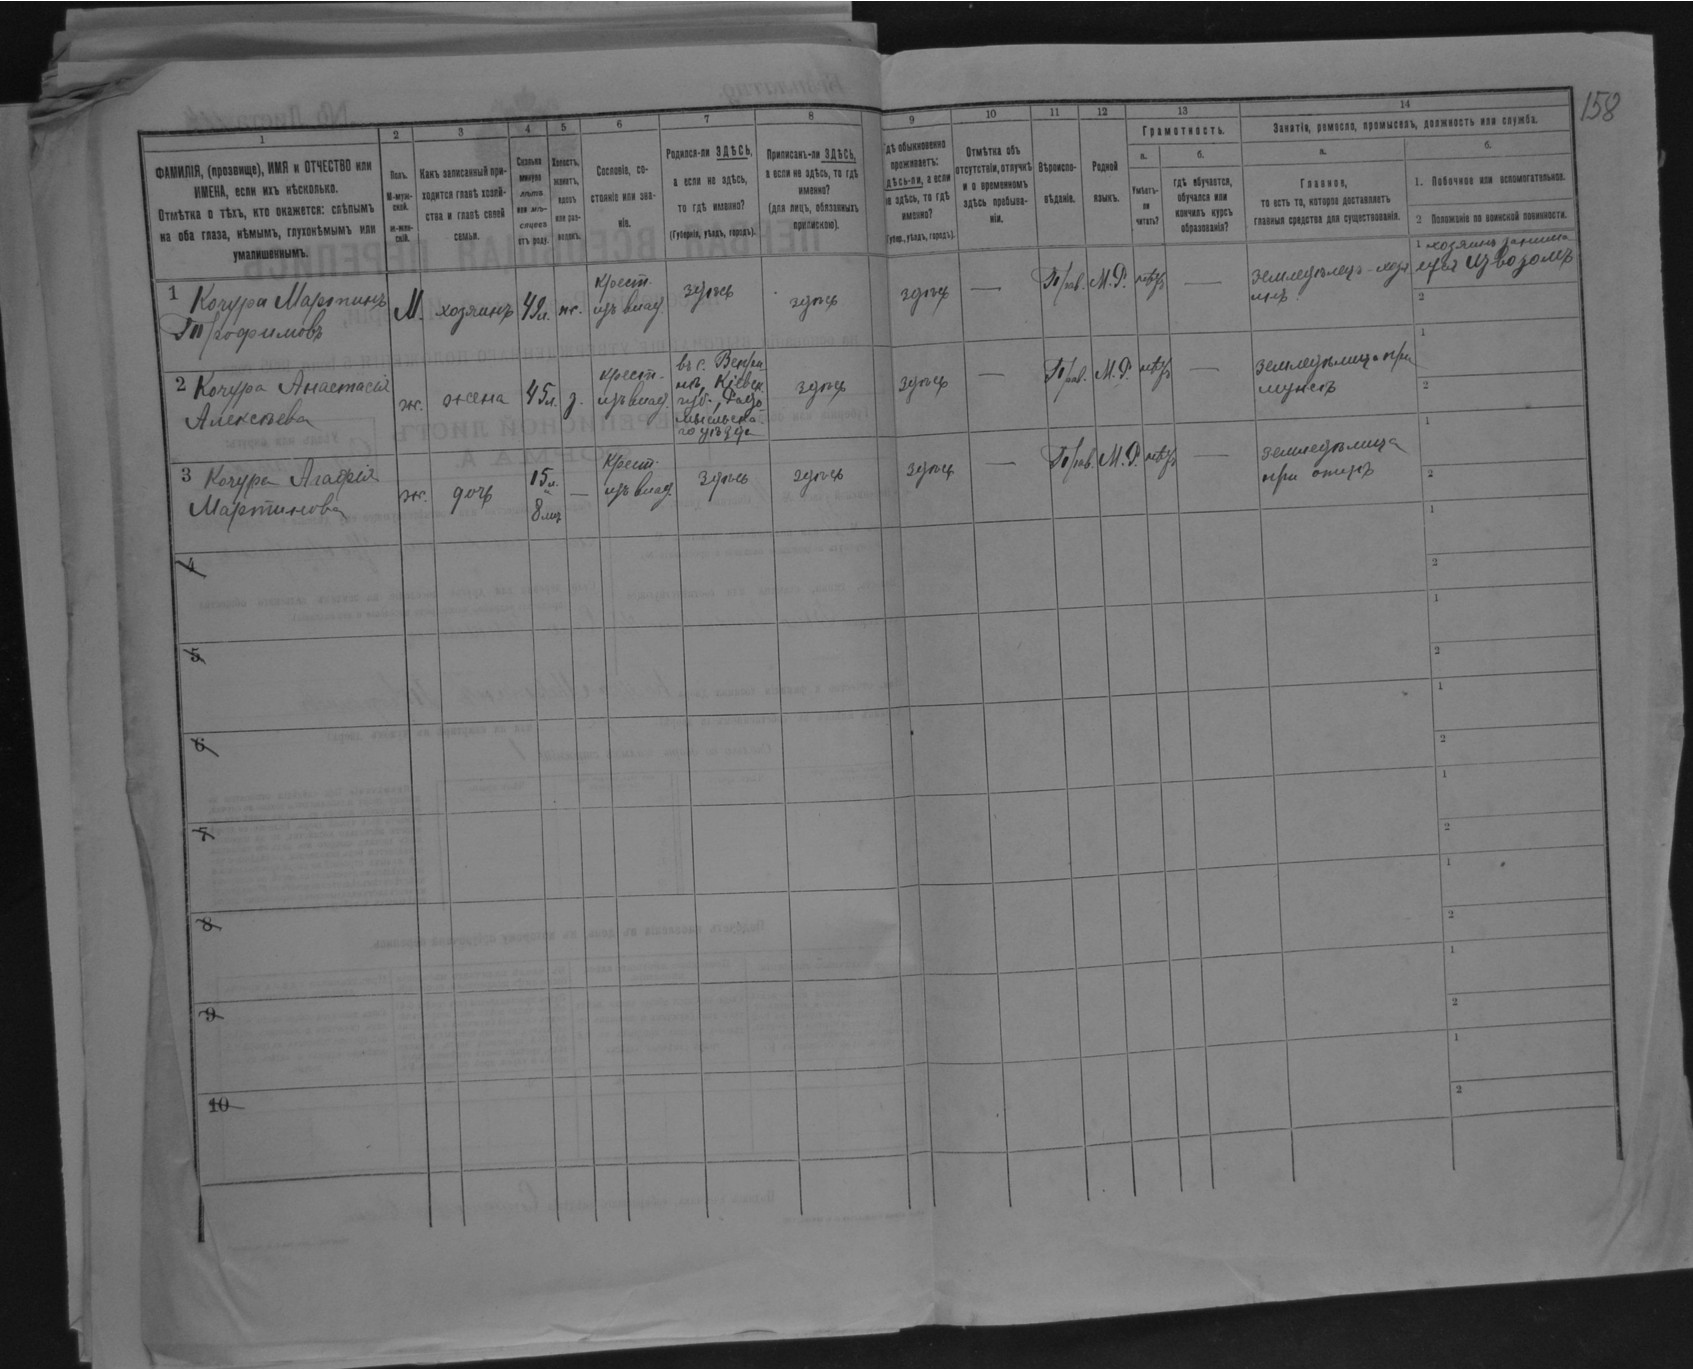 158
1 2 3 4 5 6 7 8 9 10 11 12 13 14
ФАМИЛІЯ, (прозвище), ИМЯ и ОТЧЕСТВО или
ИМЕНА, если ихъ нѣсколько.
Отмѣтка о тѣхъ, кто окажется: слѣпымъ
на оба глаза, нѣмымъ, глухонѣмымъ или
умалишеннымъ.
Полъ.
М-муж-
ской.
ж-жен-
скій.
Какъ записанный при-
ходится главѣ хозяй-
ства и главѣ своей
семьи.
Сколько
минуло
лѣтъ
или мѣс-
яцевъ
отъ роду.
Холостъ,
женатъ,
вдовъ
или раз-
веденъ.
Сословіе, со-
стояніе или зва-
ніе.
Родился-ли ЗДѢСЬ,
а если не здѣсь,
то гдѣ именно?
(Губернія, уѣздъ, городъ).
Приписанъ-ли ЗДѢСЬ,
а если не здѣсь, то гдѣ
именно?
(для лицъ, обязанныхъ
припискою).
гдѣ обыкновенно
проживаетъ:
здѣсь-ли, а если
не здѣсь, то гдѣ
именно?
(Губер., уѣздъ, городъ).
Отмѣтка объ
отсутствіи, отлучкѣ
и о временномъ
здѣсь пребыва-
ніи.
Вѣроиспо-
вѣданіе.
Родной
языкъ.
Грамотность.
а. б.
Умѣетъ-
ли
читать?
гдѣ обучается,
обучался или
кончилъ курсъ
образованія?
Занятія, ремесло, промыселъ, должность или служба.
а.
Главное,
то есть то, которое доставляетъ
главныя средства для существованія.
б.
1. Побочное или вспомогательное.
2 Положеніе по воинской повинности.
1 Кочура Мартинъ
Трофимовъ
М. хозяинъ 49 л. ж.
крест.
изъ влад.
здѣсь здѣсь здѣсь — Прав. М.Р. нѣтъ —
земледѣлецъ-хозя
инъ
1 хозяинъ занима
ется извозомъ
2
2 Кочура Анастасія
Алексѣева
ж. жена 45 л. з.
крест.
изъ влад.
въ с. Вепри
нъ, Кіевск.
губ., Радо
мысльска-
го уѣзда
здѣсь здѣсь — Прав. М.Р. нѣтъ —
земледѣлица при
мужѣ
1
2
3 Кочура Агафія
Мартинова
ж. дочь
15 л.
8 мѣ
—
крест.
изъ влад.
здѣсь здѣсь здѣсь — Прав. М.Р. нѣтъ —
земледѣлица
при отцѣ
1
2
4
1
2
5
1
2
6
1
2
7
1
2
8
1
2
9
1
2
10
1
2